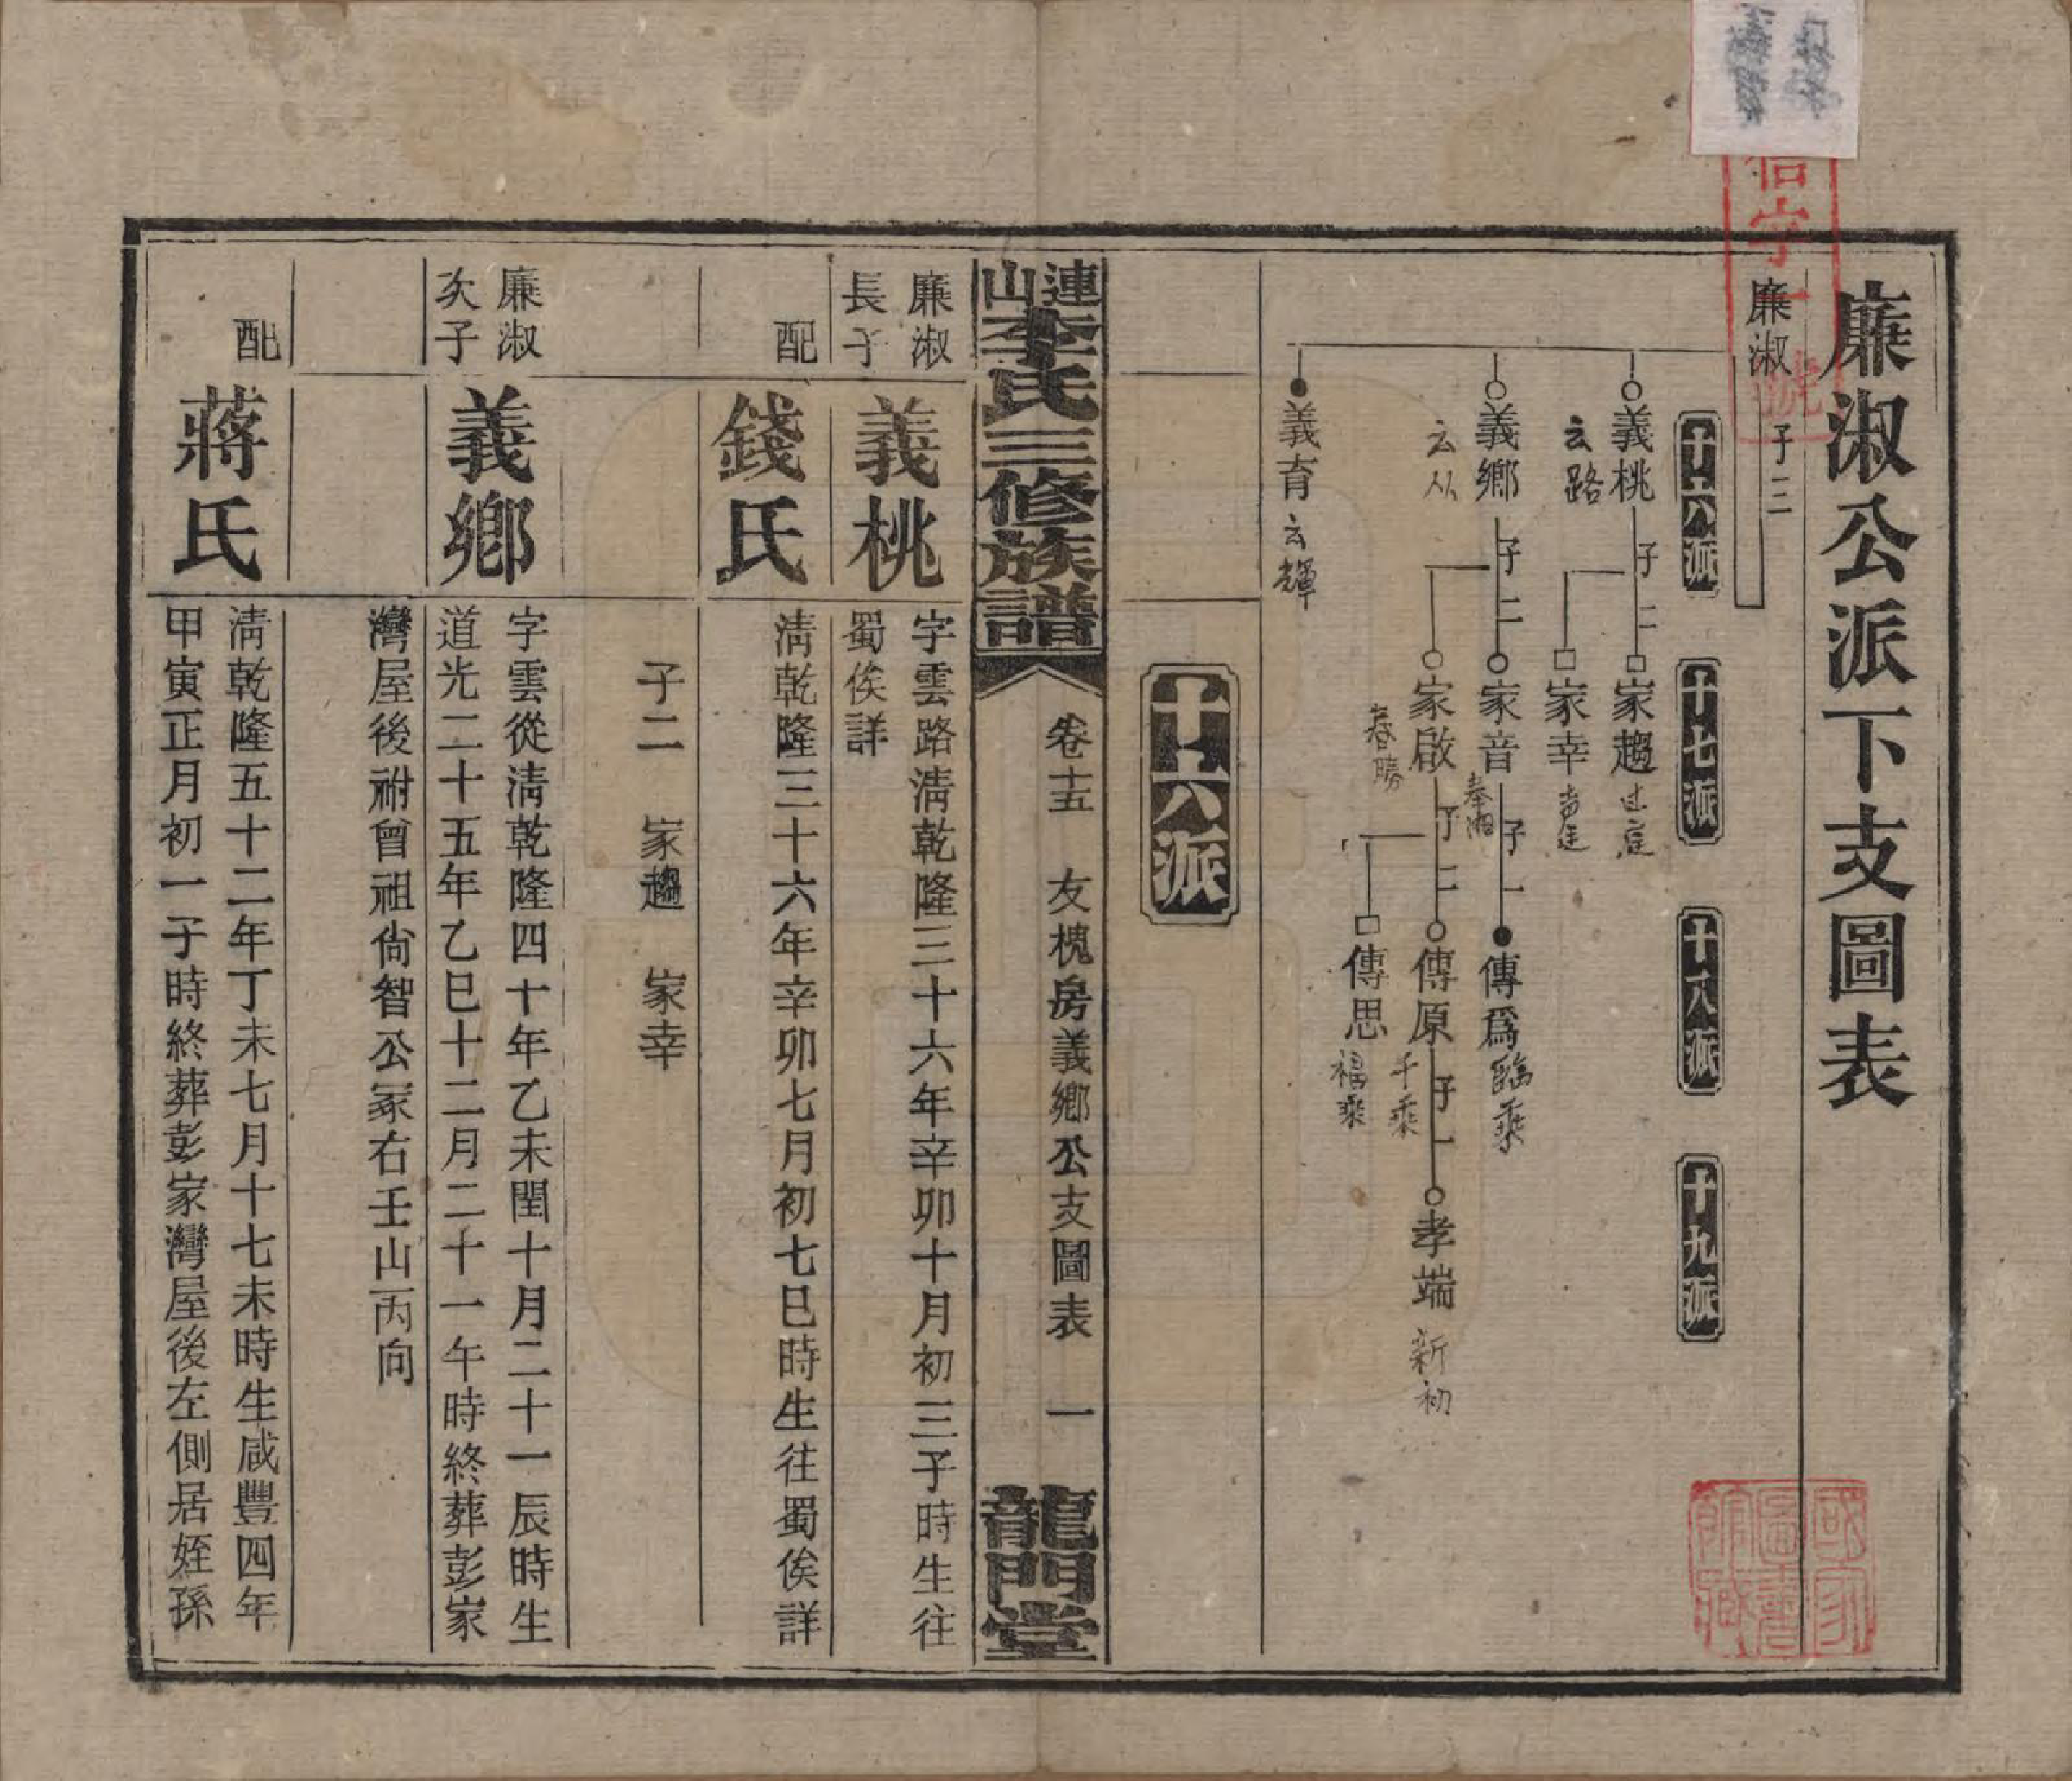 廉淑公派下支圖表
廉淑
子三
十六派
十七派
十八派
十九派
義桃
云路
子二
家趨
家幸
義鄉
云从
子二
家音
子一
傳爲
家啟
春勝
子二
傳原
千乘
子一
孝端
新初
傳思
福乘
義育
云輝
十六派
連山李氏三修族譜
卷十五 友槐房義鄉公支圖表 一
龍門堂
廉淑長子
義桃
字雲路淸乾隆三十六年辛卯十月初三子時生往
蜀俟詳
配
錢氏
淸乾隆三十六年辛卯七月初七巳時生往蜀俟詳
子二 家趨 家幸
廉淑次子
義鄉
字雲從淸乾隆四十年乙未閏十月二十一辰時生
道光二十五年乙巳十二月二十一午時終葬彭家
灣屋後祔曾祖尙智公冢右壬山丙向
配
蔣氏
淸乾隆五十二年丁未七月十七未時生咸豐四年
甲寅正月初一子時終葬彭家灣屋後左側居姪孫
國家圖書館藏